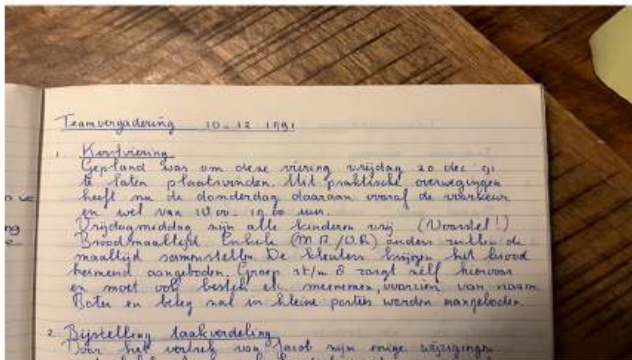 Teamvergadering 10-12 1991
1. Kerstviering
Gepland was om deze viering vrijdag 20 dec '91
te laten plaatsvinden. Uit praktische overwegingen
heeft nu de donderdag daaraan vooraf de voorkeur
en wel van
Vrijdagmiddag zijn alle kinderen vrij (Voorstel!)
Broodmaaltijd Enkele (M.R/O.R) ouders zullen de
maaltijd samenstellen. De kleuters krijgen het brood
aangeboden. Groep 3t/m 8 zorgt zelf hiervoor
en moet ook bestek etc meenemen, voorzien van naam
Boter en beleg zal in kleine porties worden aangeboden.
2. Bijstelling taakverdeling
Door het vertrek van Jacob zijn enige wijzigingen